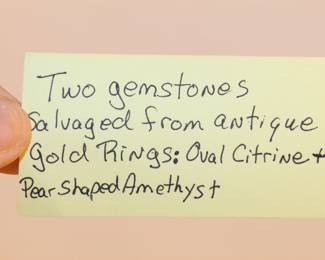 Two gemstones
Salvaged from antique
Gold Rings: Oval Citrine +
Pear shaped Amethyst